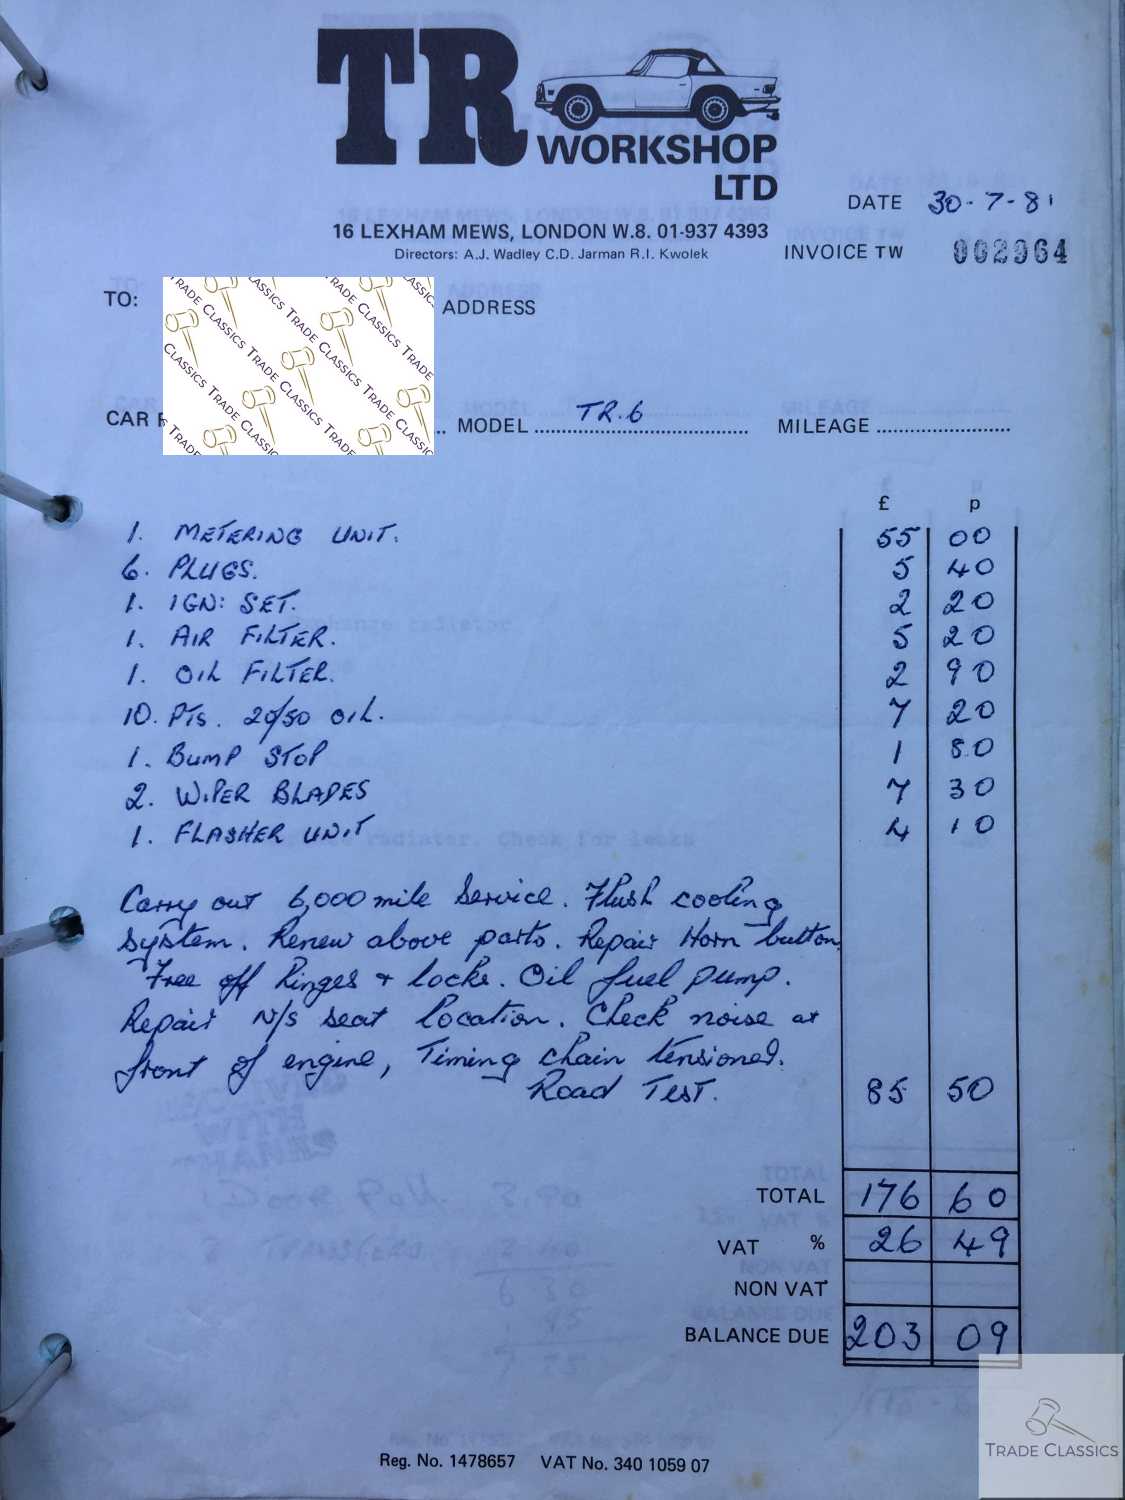 TR
WORKSHOP
LTD
16 LEXHAM MEWS, LONDON W.8. 01-937 4393
Directors: A.J. Wadley C.D. Jarman R.I. Kwolek
DATE 30-7-81
INVOICE TW 002964
TO:
ADDRESS
CAR
MODEL TR.6
MILEAGE
£ p
1. METERING UNIT. 55 00
6. PLUGS. 5 40
1. IGN: SET. 2 20
1. AIR FILTER. 5 20
1. OIL FILTER. 2 90
10. PTS. 20/50 OIL. 7 20
1. BUMP STOP 1 80
2. WIPER BLADES 7 30
1. FLASHER UNIT 4 10
Carry out 6,000 mile Service. Flush cooling
System. Renew above parts. Repair Horn button.
Free off hinges + locks. Oil fuel pump.
Repair N/S seat location. Check noise at
front of engine, Timing chain tensioned.
Road Test. 85 50
TOTAL 176 60
VAT % 26 49
NON VAT
BALANCE DUE 203 09
Reg. No. 1478657 VAT No. 340 1059 07
TRADE CLASSICS